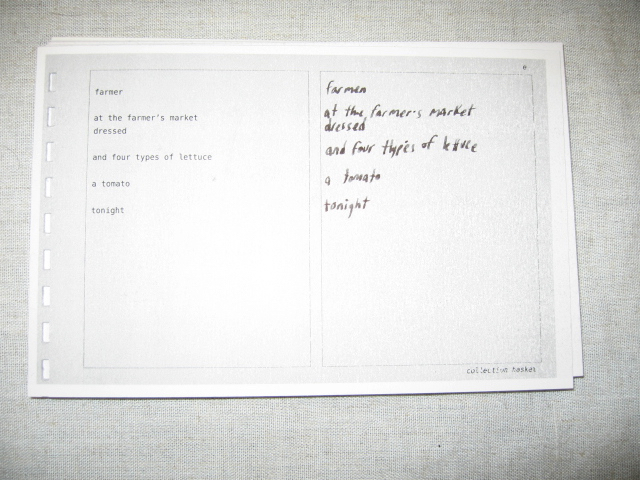 farmer
at the farmer's market
dressed
and four types of lettuce
a tomato
tonight
farmer
at the farmer's market
dressed
and four types of lettuce
a tomato
tonight
collection basket